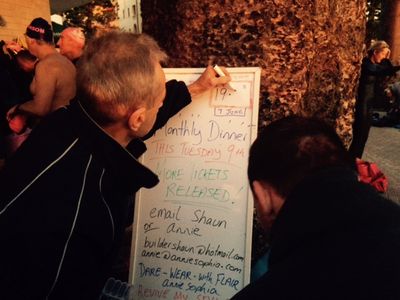 19.
7 JUNE
Monthly Dinner
THIS TUESDAY 9TH
MORE TICKETS
RELEASED!
email Shaun
or annie
buildershaun@hotmail.com
annie@anniesophia.com
DARE-WEAR-with FLAIR
annie Sophia
REVIVE MY